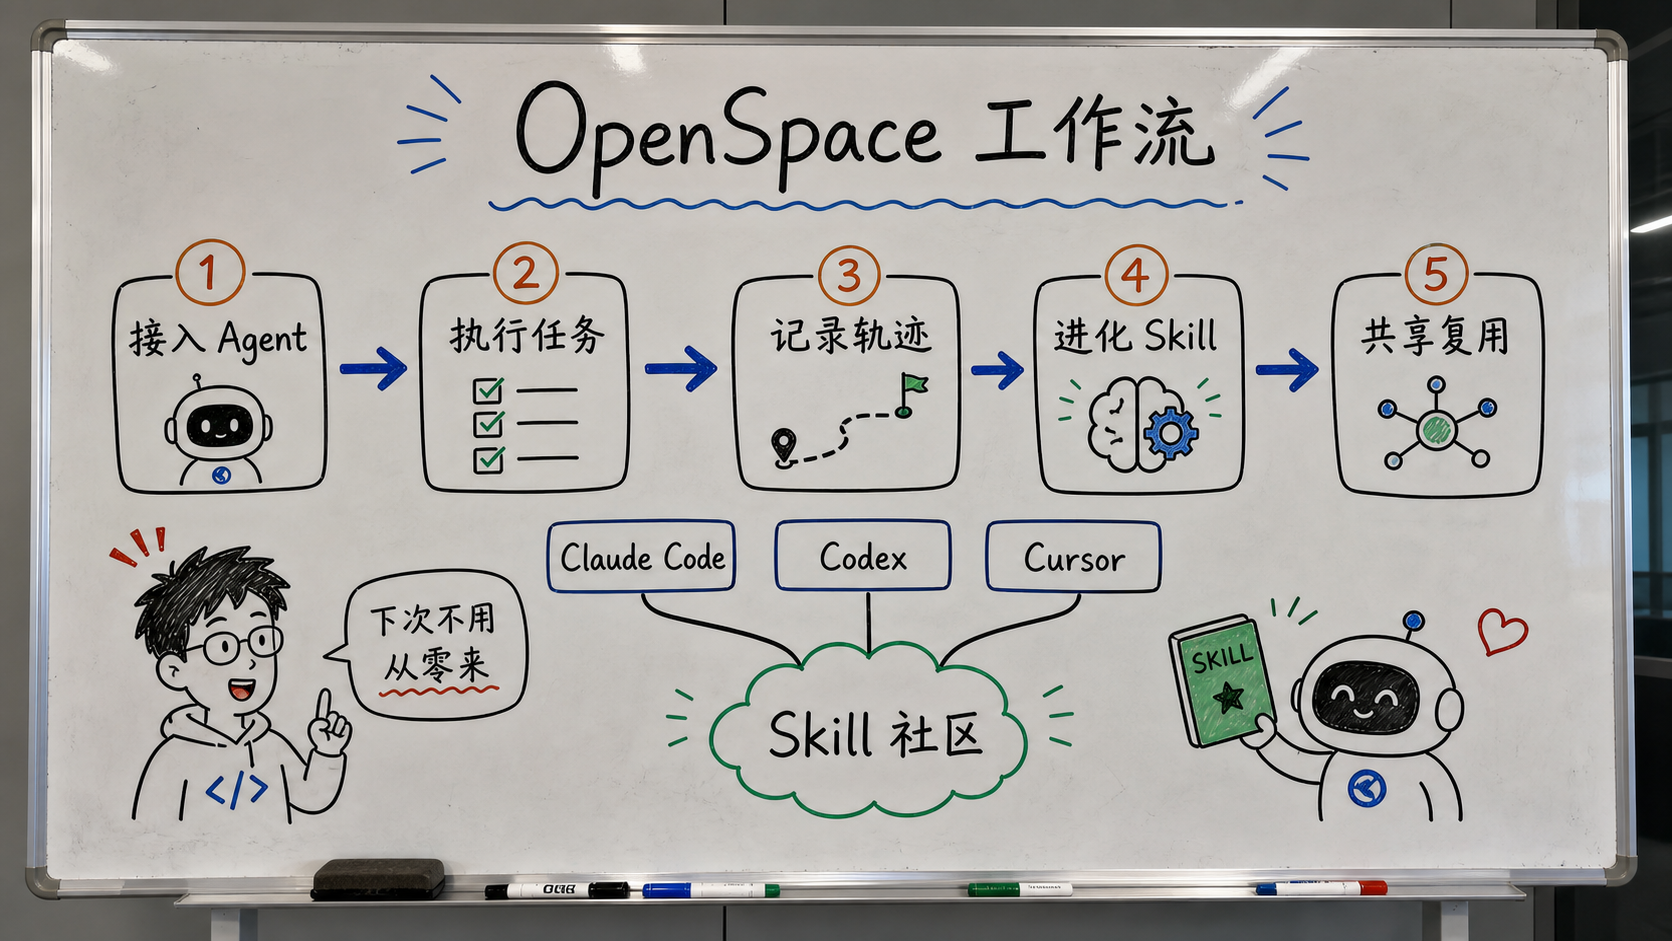 OpenSpace 工作流
1
接入 Agent
2
执行任务
3
记录轨迹
4
进化 Skill
5
共享复用
下次不用
从零来
</>
Claude Code
Codex
Cursor
Skill 社区
SKILL